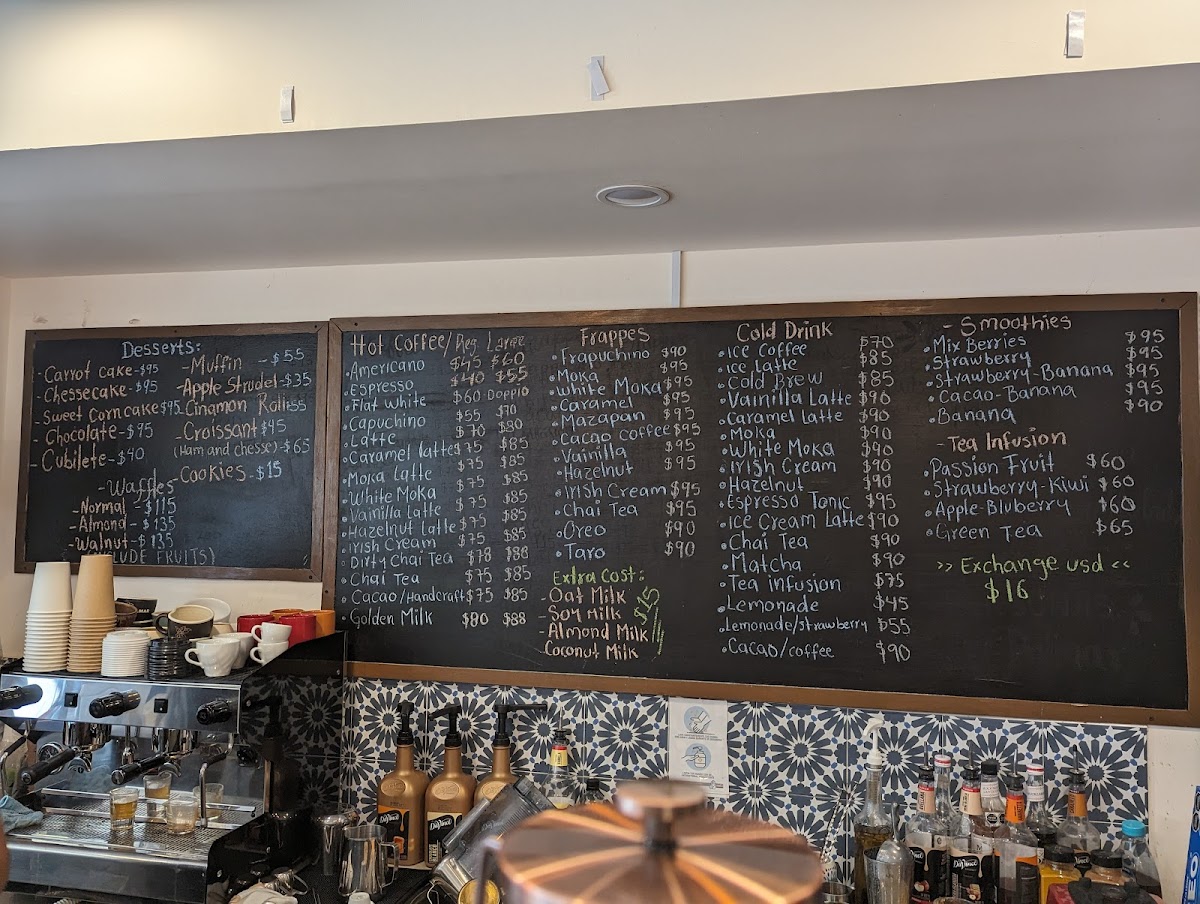 Desserts:
- Carrot cake - $95
- Chessecake - $95
- Sweet Corncake $95
- Chocolate - $95
- Cubilete - $40
- Muffin - $55
- Apple Strudel - $35
- Cinamon Roll - $55
- Croissant $45
(Ham and chesse) - $65
Cookies - $15
- Waffles
- Normal - $115
- Almond - $135
- Walnut - $135
LUDE FRUITS)
Hot Coffee/ Reg Large
• Americano $45 $60
• Espresso $40 $55
• Flat White $60 Doppio
• Capuchino $55 $70
• Latte $70 $80
• Caramel latte $75 $85
• Moka Latte $75 $85
• White Moka $75 $85
• Vainilla latte $75 $85
• Hazelnut Latte $75 $85
• Irish Cream $75 $85
• Dirty Chai Tea $78 $88
• Chai Tea $75 $85
• Cacao/Handcraft $75 $85
• Golden Milk $80 $88
Frappes
• Frapuchino $90
• Moka $95
• White Moka $95
• Caramel $95
• Mazapan $95
• Cacao coffee $95
• Vainilla $95
• Hazelnut $95
• Irish Cream $95
• Chai Tea $95
• Oreo $90
• Taro $90
Extra Cost:
- Oat Milk
- Soy milk $15
- Almond Milk
- Coconut Milk
Cold Drink
• Ice Coffee $70
• Ice Latte $85
• Cold Brew $85
• Vainilla Latte $90
• Caramel latte $90
• Moka $90
• White Moka $90
• Irish Cream $90
• Hazelnut $90
• Espresso Tonic $95
• Ice Cream Latte $90
• Chai Tea $90
• Matcha $90
• Tea infusion $75
• Lemonade $45
• Lemonade/strawberry $55
• Cacao/coffee $90
- Smoothies
• Mix Berries $95
• Strawberry $95
• Strawberry-Banana $95
• Cacao-Banana $95
• Banana $90
- Tea Infusion
• Passion Fruit $60
• Strawberry-Kiwi $60
• Apple-Bluberry $60
• Green Tea $65
>> Exchange usd <<
$16
DaVinci
DaVinci
DaVinci